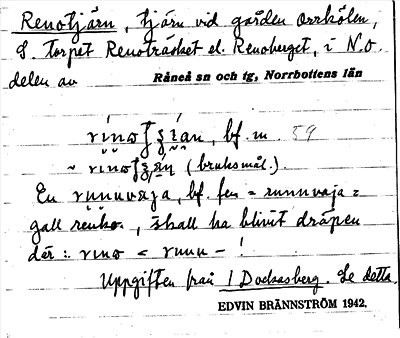 Renotjärn, tjärn vid gården Orrkölen,
S. torpet Renoträsket el. Renoberget, i N.O.
delen av Råneå sn och tg, Norrbottens län
bf. m. 59
~ (bruksmål.).
En bf. fen = runnvaja =
gall renko, skall ha blivit dräpen
där :. vıno < vunn - !
Uppgiften från 1 Dockasberg. Se detta.
EDVIN BRÄNNSTRÖM 1942.